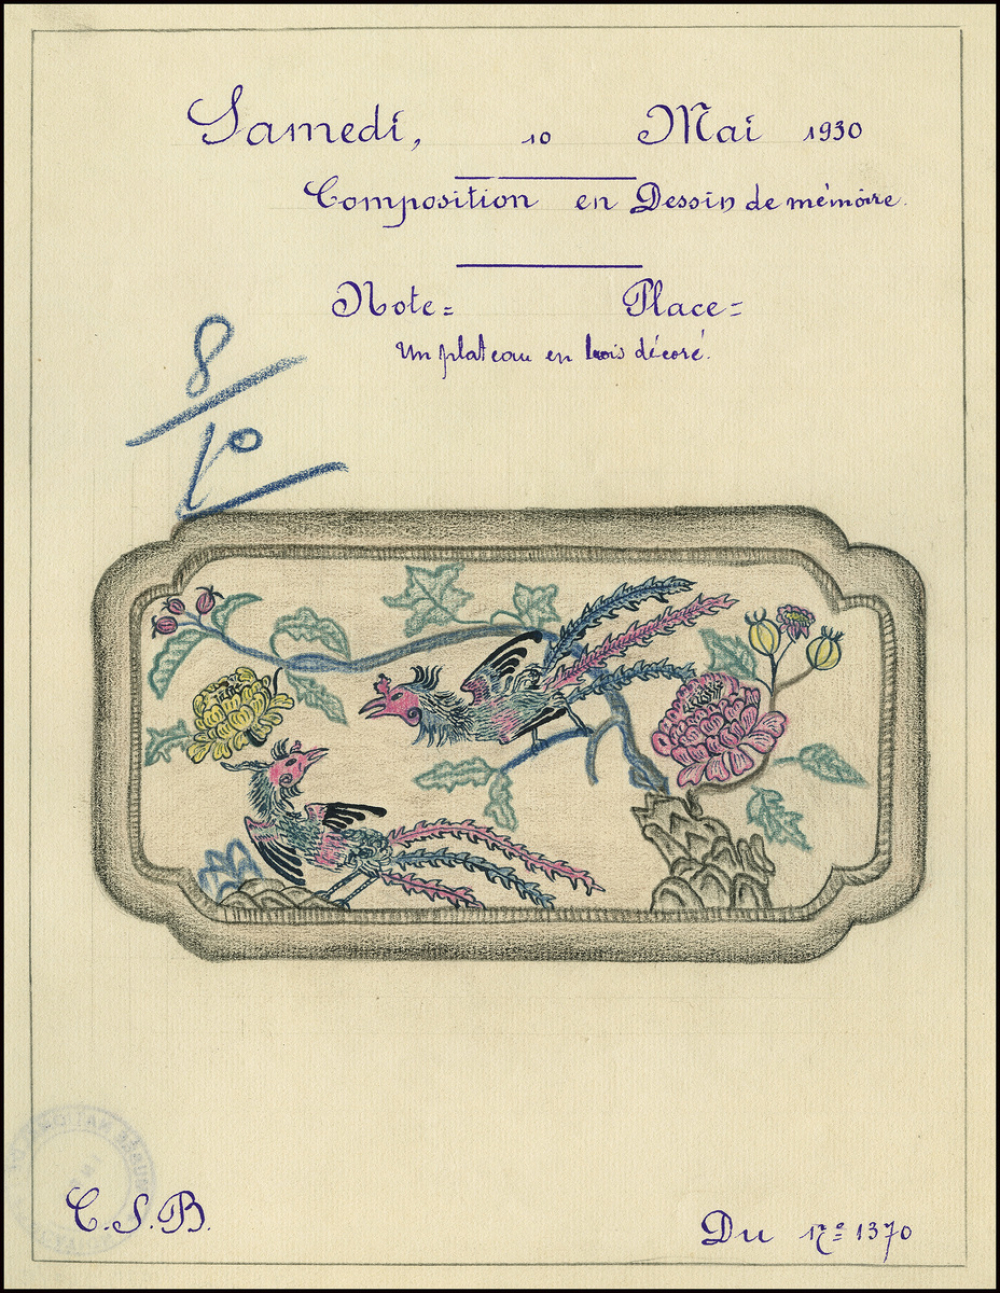 Samedi, 10 Mai 1930
Composition en Dessin de mémoire.
Note = Place =
Un plateau en bois décoré.
8/10
C.S.B.
Du N° 1370